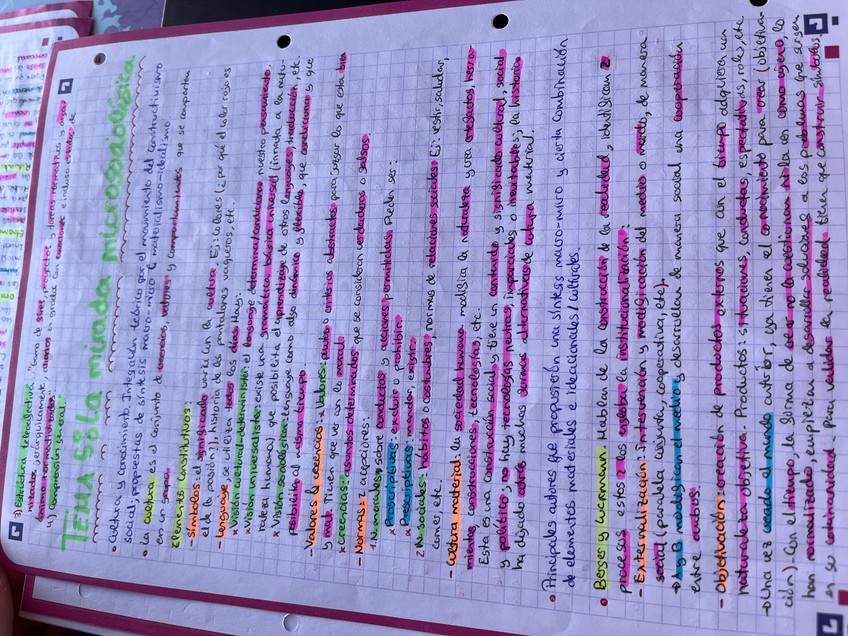 3) Estructura retrospectiva
4) Comprensión general:
TEMA 5: la mirada microsociológica
• Cultura y conocimiento. Integración teórica por el movimiento del constructivismo
social, propuestas de síntesis macro-micro & materialismo-idealismo
• La cultura es el conjunto de creencias, valores y comportamientos que se comparten
en un grupo.
Elementos constitutivos:
- Símbolos: el significado varía con la cultura. Ej: colores (¿por qué el color rojo es
el de la pasión?), historia de los pantalones vaqueros, etc.
- Lenguaje, se utiliza todos los días. Hay:
x Visión cultural-determinista: el lenguaje determina/condiciona nuestro pensamiento.
x Visión universalista: existe una gramática básica universal (innata a la natu-
raleza humana) que posibilita el aprendizaje de otros lenguajes, traducción, etc.
x Visión sociológica: lenguaje como algo dinámico y flexible, que condiciona y que
posibilita al mismo tiempo.
- Valores & creencias: x Valores: pauta o criterios abstractos para juzgar lo que está bien
y mal. Tienen que ver con la moral.
x Creencias: asuntos determinados que se consideran verdaderos o falsos.
- Normas: 2 acepciones:
1. N. morales, sobre conductas y acciones permitidas. Pueden ser:
x Proscriptivas: excluir o prohibir.
x Prescriptivas: mandar, existir.
2. N. sociales: hábitos o costumbres, normas de relaciones sociales. Ej: vestir, saludar,
comer, etc.
- Cultura material: la sociedad humana modifica la naturaleza y crea artefactos, herra-
mientas, construcciones, tecnologías, etc.
Esta es una construcción social y tiene un contenido y significado cultural, social
y político, no hay tecnologías neutras, imparciales o inevitables; la historia
ha dejado atrás muchas formas alternativas de cultura material.
• Principales autores que propusieron una síntesis macro-micro y cierta combinación
de elementos materiales e ideacionales/culturales.
• Berger y Luckmann. Hablan de la construcción de la realidad, identifican 2
procesos, estos 2 los explica la institucionalización:
- Externalización: intervención y modificación del medio o mundo, de manera
social (paralela, conjunta, cooperativa, etc).
→ A y B modifican el medio, desarrollan de manera social una cooperación
entre ambos.
- Objetivación: creación de productos externos que con el tiempo adquieren una
naturaleza objetiva. Productos: situaciones, conductas, expectativas, roles, etc.
→ Una vez creado el mundo anterior, ya tienen el conocimiento para crear (objetiva-
ción). Con el tiempo, la forma de crear no la cuestionan, no la ven como ajeno, lo
han normalizado, empiezan a desarrollar soluciones a los problemas que surgen
en su cotidianidad. Para validar la realidad, tienen que construir